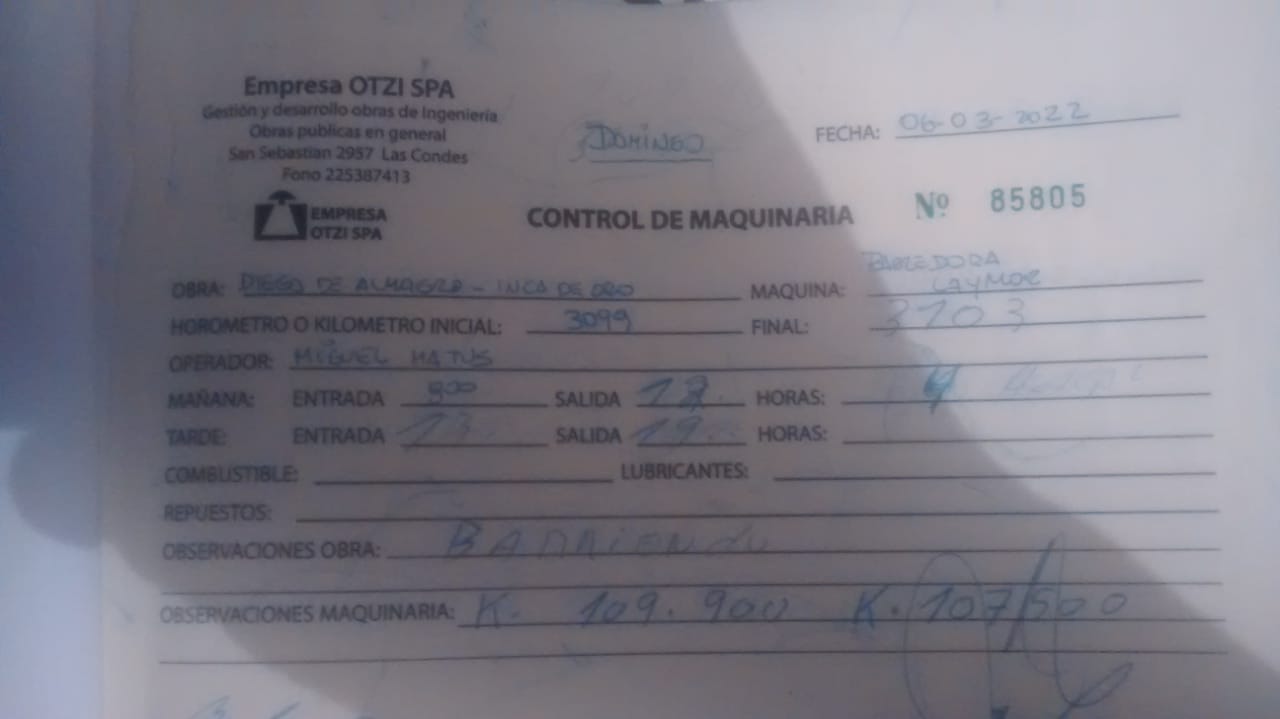 Empresa OTZI SPA
Gestión y desarrollo obras de Ingeniería
Obras publicas en general
San Sebastian 2957 Las Condes
Fono 225387413
EMPRESA
OTZI SPA
DOMINGO
FECHA: 06-03-2022
Nº 85805
CONTROL DE MAQUINARIA
OBRA: DIEGO DE ALMAGRO - INCA DE ORO MAQUINA: BARREDORA LAYMOR
HOROMETRO O KILOMETRO INICIAL: 3099 FINAL: 3103
OPERADOR: MIGUEL MATUS
MAÑANA: ENTRADA 800 SALIDA HORAS: 4
TARDE: ENTRADA 13 SALIDA 19 HORAS:
COMBUSTIBLE: LUBRICANTES:
REPUESTOS:
OBSERVACIONES OBRA: BARRIENDO
OBSERVACIONES MAQUINARIA: K. 109.900 K. 107/500